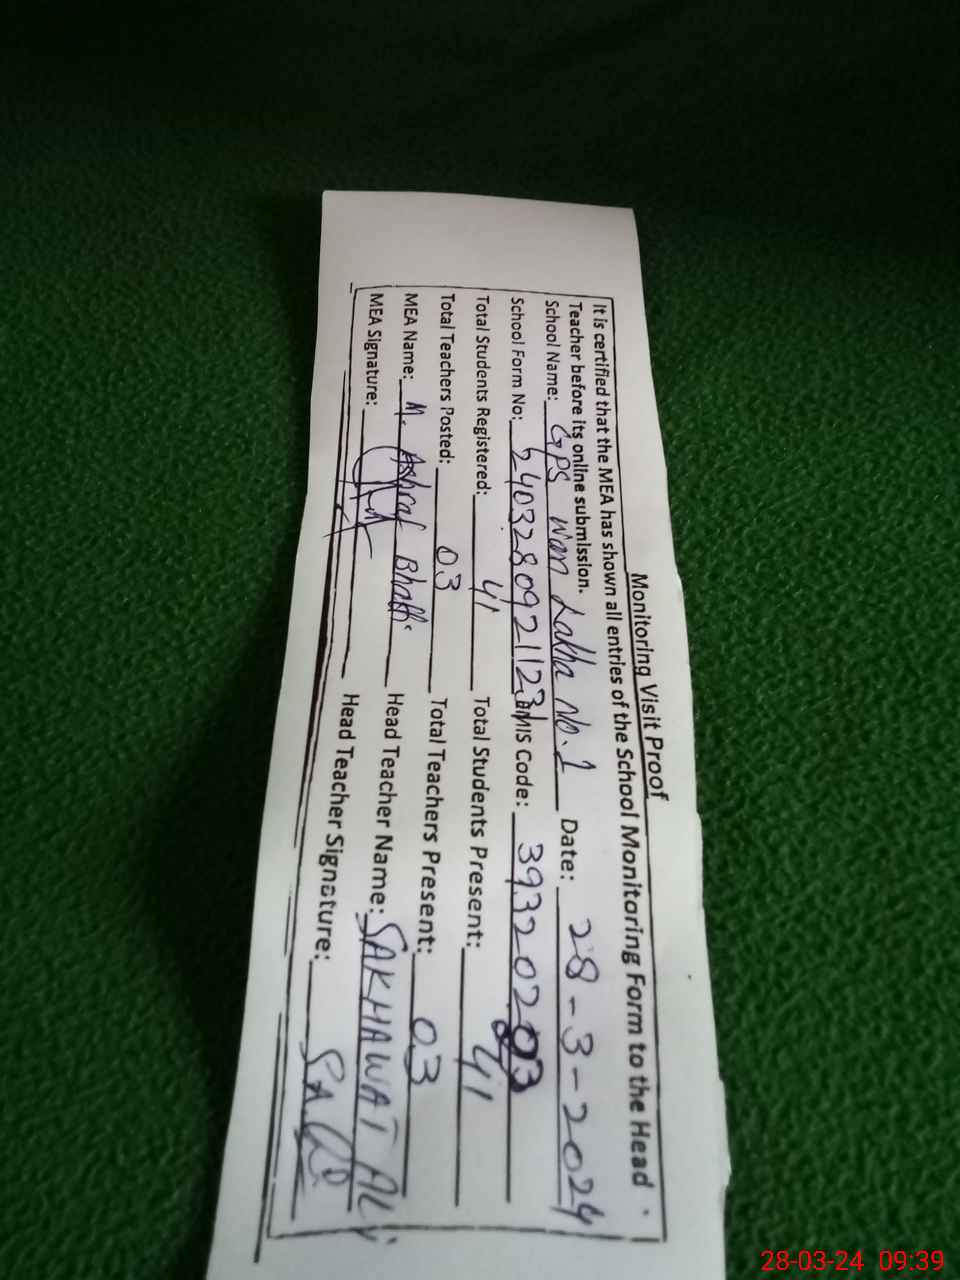 Monitoring Visit Proof
It is certified that the MEA has shown all entries of the School Monitoring Form to the Head
Teacher before its online submission.
School Name: GPS Wan Lakha No. 1 Date: 28-3-2024
School Form No: EMIS Code: 39320203
Total Students Registered: 41 Total Students Present: 41
Total Teachers Posted: 03 Total Teachers Present: 03
MEA Name: M. Ashraf Bhatti Head Teacher Name: SAKHAWAT ALI
MEA Signature: Head Teacher Signature:
28-03-24 09:39